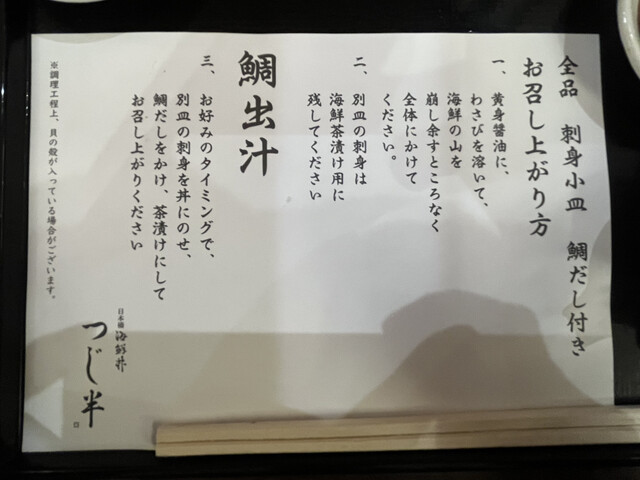 全品 刺身小皿 鯛だし付き
お召し上がり方
一、黄身醤油に、
わさびを溶いて、
海鮮の山を
崩し余すところなく
全体にかけて
ください。
二、別皿の刺身は
海鮮茶漬け用に
残してください
鯛出汁
三、お好みのタイミングで、
別皿の刺身を丼にのせ、
鯛だしをかけ、茶漬けにして
お召し上がりください
※調理工程上、貝の殻が入っている場合がございます。
日本橋 海鮮丼
つじ半